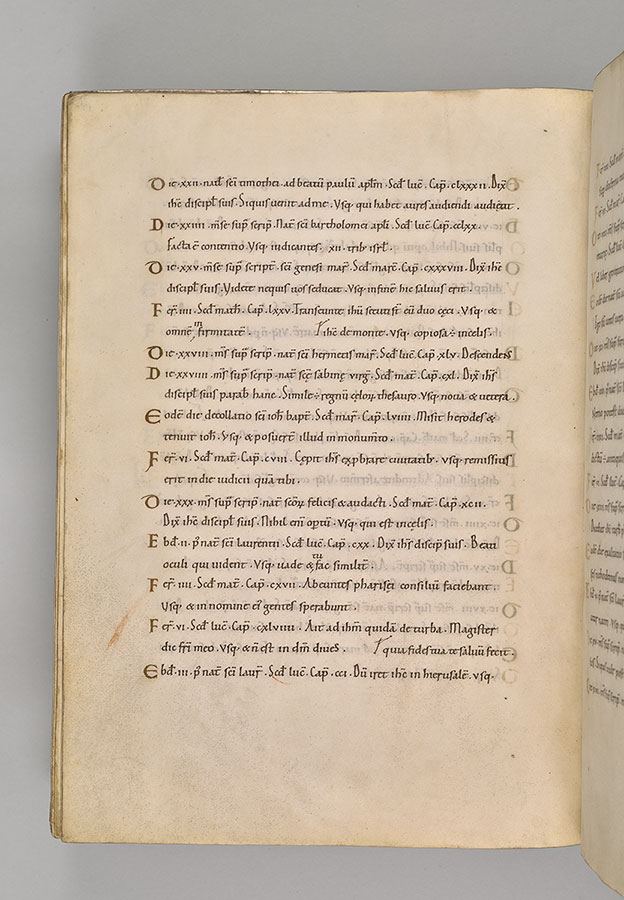 Die · xxii · nat̄ sc̄i timothei · ad beatū paulū apl̄m · Scd̄ luc̄ · Cap̄ · clxxxii · Dix̄
ih̄c discipl̄ suis · Siquis uenit adme · Vsq · qui habet aures audiendi audiat ·
Die · xxiiii · m̄se sup̄ scrip̄ · Nat̄ sc̄i bartholomei apl̄i · Scd̄ luc̄ · Cap̄ · cclxx ·
Facta ē contentio · Vsq · iudicantes · xii · trib̄ isrl̄ ·
Die · xxv · m̄se sup̄ script̄ · sc̄i genesi mar̄ · Scd̄ marc̄ · Cap̄ · cxxxviii · Dix̄ ih̄c
discipl̄ suis · Videte nequis uos seducat · Vsq · infinē hic saluus erit ·
Fer̄ · iiii · Scd̄ math̄ · Cap̄ · lxxv · Transeunte ih̄u secuti st̄ eū duo ceci · Vsq · &
omnē infirmitatē · ih̄c de monte · vsq · copiosa ÷ incelis ·
Die · xxviii · m̄s sup̄ scrip̄ · nat̄ sc̄i hermetis mar̄ · Scd̄ luc̄ · Cap̄ · xlv · Descendens
Die · xxviiii · m̄s sup̄ scrip̄ · nat̄ sc̄e sabine virḡ · Scd̄ mat̄ · Cap̄ · cxl · Dix̄ ih̄s
discipl̄ suis parab̄ hanc · Simile ÷ regnū celor̄ thesauro · Vsq · noua & uetera ·
Eodē die decollatio sc̄i ioh̄ bapt̄ · Scd̄ mar̄ · Cap̄ · lviii · Misit herodes &
tenuit ioh̄ · Vsq · & posuer̄t illud in monum̄to ·
Fer̄ · vi · Scd̄ mat̄ · Cap̄ · cviii · Cepit ih̄s exprobrare ciuitatib̄ · vsq · remissius
erit in die iudicii quā tibi ·
Die · xxx · m̄s sup̄ scrip̄ · nat̄ sc̄or̄ felicis & audacti · Scd̄ mat̄ · Cap̄ · xcii ·
Dix̄ ih̄c discipl̄ suis · Nihil eni opt̄ū · Vsq · qui est in celis ·
Ebd̄ · ii · p̄ nat̄ sc̄i laurenti · Scd̄ luc̄ · Cap̄ · cxx · Dix̄ ih̄s discip̄ suis · Beati
oculi qui uident · Vsq · uade & tu fac similit̄ ·
Fer̄ · iiii · Scd̄ mat̄ · Cap̄ · cxvii · Abeuntes pharisei consiliū faciebant ·
Vsq · & in nomine ei gentes sperabunt ·
Fer̄ · vi · Scd̄ luc̄ · Cap̄ · cxlviiii · Ait ad ih̄m quidā de turba · Magister
dic fr̄i meo · Vsq · & n̄ est in dm̄ diues · quia fides tua te saluū fecit ·
Ebd̄ · iii · p̄ nat̄ sc̄i laur̄ · Scd̄ luc̄ · Cap̄ · cci · Dū iret ih̄c in hierusalē · vsq ·